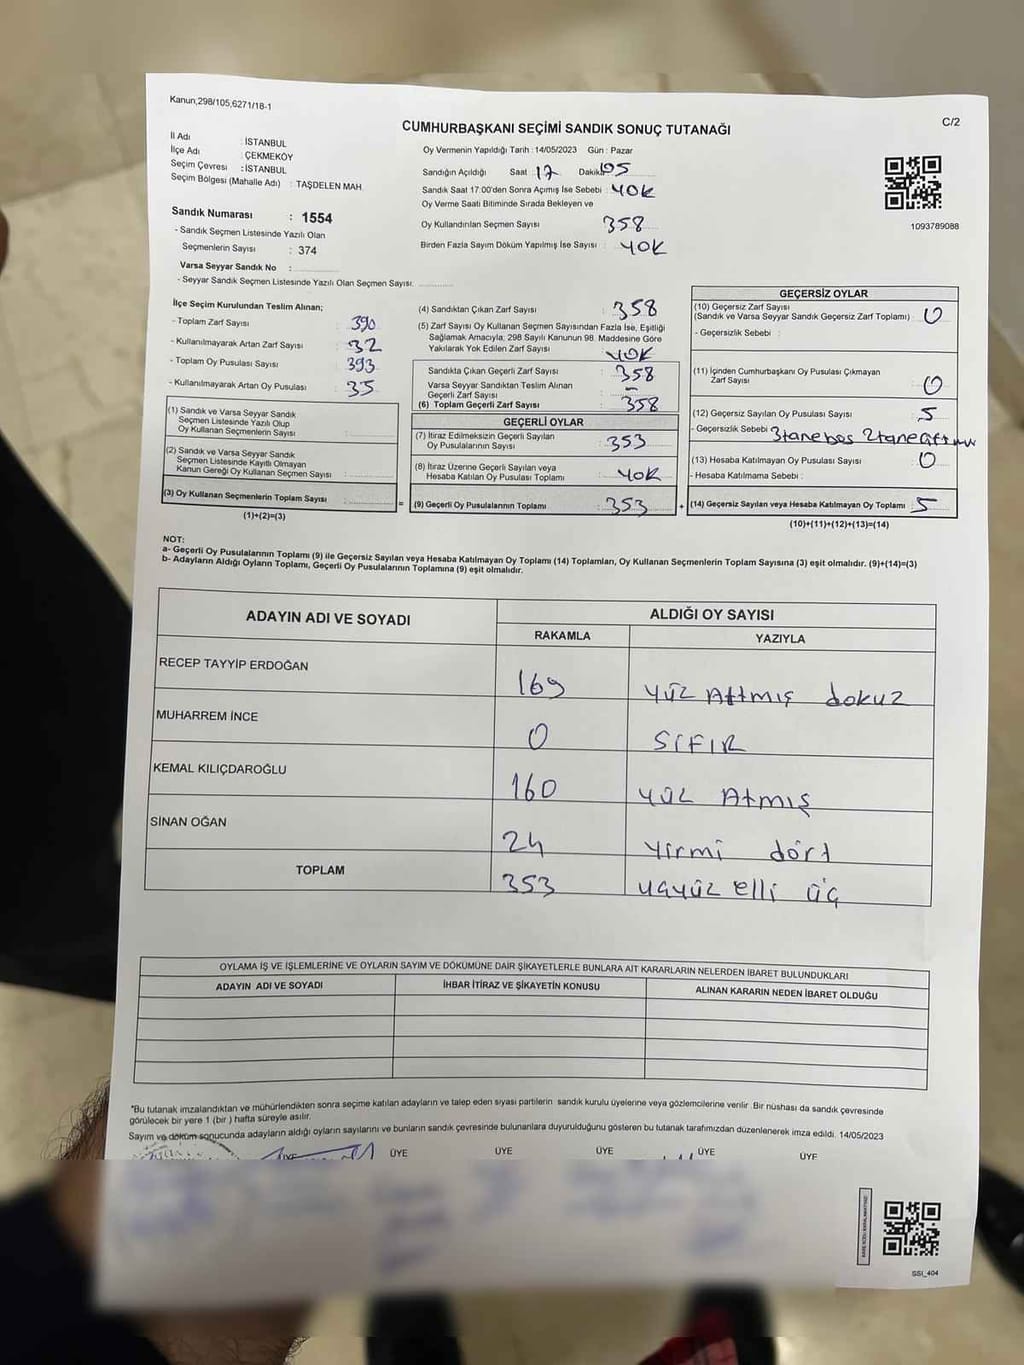 Kanun,298/105,6271/18-1
C/2
CUMHURBAŞKANI SEÇİMİ SANDIK SONUÇ TUTANAĞI
İl Adı : İSTANBUL
İlçe Adı : ÇEKMEKÖY
Seçim Çevresi : İSTANBUL
Seçim Bölgesi (Mahalle Adı) : TAŞDELEN MAH.
Sandık Numarası : 1554
- Sandık Seçmen Listesinde Yazılı Olan
Seçmenlerin Sayısı : 374
Varsa Seyyar Sandık No :
- Seyyar Sandık Seçmen Listesinde Yazılı Olan Seçmen Sayısı:
Oy Vermenin Yapıldığı Tarih : 14/05/2023 Gün : Pazar
Sandığın Açıldığı Saat 17 Dakika 05
Sandık Saat 17.00'den Sonra Açımış İse Sebebi : YOK
Oy Verme Saati Bitiminde Sırada Bekleyen ve
Oy Kullandırılan Seçmen Sayısı 358
Birden Fazla Sayım Döküm Yapılmış İse Sayısı : YOK
1093789088
İlçe Seçim Kurulundan Teslim Alınan;
- Toplam Zarf Sayısı : 390
- Kullanılmayarak Artan Zarf Sayısı : 32
- Toplam Oy Pusulası Sayısı : 393
- Kullanılmayarak Artan Oy Pusulası : 35
(1) Sandık ve Varsa Seyyar Sandık
Seçmen Listesinde Yazılı Olup
Oy Kullanan Seçmenlerin Sayısı :
(2) Sandık ve Varsa Seyyar Sandık
Seçmen Listesinde Kayıtlı Olmayan
Kanun Gereği Oy Kullanan Seçmen Sayısı :
(3) Oy Kullanan Seçmenlerin Toplam Sayısı :
(1)+(2)=(3)
(4) Sandıktan Çıkan Zarf Sayısı : 358
(5) Zarf Sayısı Oy Kullanan Seçmen Sayısından Fazla İse, Eşitliği
Sağlamak Amacıyla; 298 Sayılı Kanunun 98. Maddesine Göre
Yakılarak Yok Edilen Zarf Sayısı : YOK
Sandıkta Çıkan Geçerli Zarf Sayısı : 358
Varsa Seyyar Sandıktan Teslim Alınan
Geçerli Zarf Sayısı : -
(6) Toplam Geçerli Zarf Sayısı : 358
GEÇERLİ OYLAR
(7) İtiraz Edilmeksizin Geçerli Sayılan
Oy Pusulalarının Sayısı : 353
(8) İtiraz Üzerine Geçerli Sayılan veya
Hesaba Katılan Oy Pusulası Toplamı : YOK
= (9) Geçerli Oy Pusulalarının Toplamı : 353
GEÇERSİZ OYLAR
(10) Geçersiz Zarf Sayısı
(Sandık ve Varsa Seyyar Sandık Geçersiz Zarf Toplamı) : 0
- Geçersizlik Sebebi :
(11) İçinden Cumhurbaşkanı Oy Pusulası Çıkmayan
Zarf Sayısı : 0
(12) Geçersiz Sayılan Oy Pusulası Sayısı : 5
- Geçersizlik Sebebi : 3 tane boş 2 tane
(13) Hesaba Katılmayan Oy Pusulası Sayısı : 0
- Hesaba Katılmama Sebebi :
+ (14) Geçersiz Sayılan veya Hesaba Katılmayan Oy Toplamı : 5
(10)+(11)+(12)+(13)=(14)
NOT:
a- Geçerli Oy Pusulalarının Toplamı (9) ile Geçersiz Sayılan veya Hesaba Katılmayan Oy Toplamı (14) Toplamları, Oy Kullanan Seçmenlerin Toplam Sayısına (3) eşit olmalıdır. (9)+(14)=(3)
b- Adayların Aldığı Oyların Toplamı, Geçerli Oy Pusulalarının Toplamına (9) eşit olmalıdır.
ADAYIN ADI VE SOYADI ALDIĞI OY SAYISI
RAKAMLA YAZIYLA
RECEP TAYYİP ERDOĞAN 169 YÜZ Altmış dokuz
MUHARREM İNCE 0 SIFIR
KEMAL KILIÇDAROĞLU 160 YÜZ Atmış
SİNAN OĞAN 24 Yirmi dört
TOPLAM 353 üçyüz elli üç
OYLAMA İŞ VE İŞLEMLERİNE VE OYLARIN SAYIM VE DÖKÜMÜNE DAİR ŞİKAYETLERLE BUNLARA AİT KARARLARIN NELERDEN İBARET BULUNDUKLARI
ADAYIN ADI VE SOYADI İHBAR İTİRAZ VE ŞİKAYETİN KONUSU ALINAN KARARIN NEDEN İBARET OLDUĞU
*Bu tutanak imzalandıktan ve mühürlendikten sonra seçime katılan adayların ve talep eden siyasi partilerin sandık kurulu üyelerine veya gözlemcilerine verilir. Bir nüshası da sandık çevresinde
görülecek bir yere 1 (bir) hafta süreyle asılır.
Sayım ve döküm sonucunda adayların aldığı oyların sayılarını ve bunların sandık çevresinde bulunanlara duyurulduğunu gösteren bu tutanak tarafımızdan düzenlenerek imza edildi. 14/05/2023
ÜYE ÜYE ÜYE ÜYE ÜYE
SSI_404